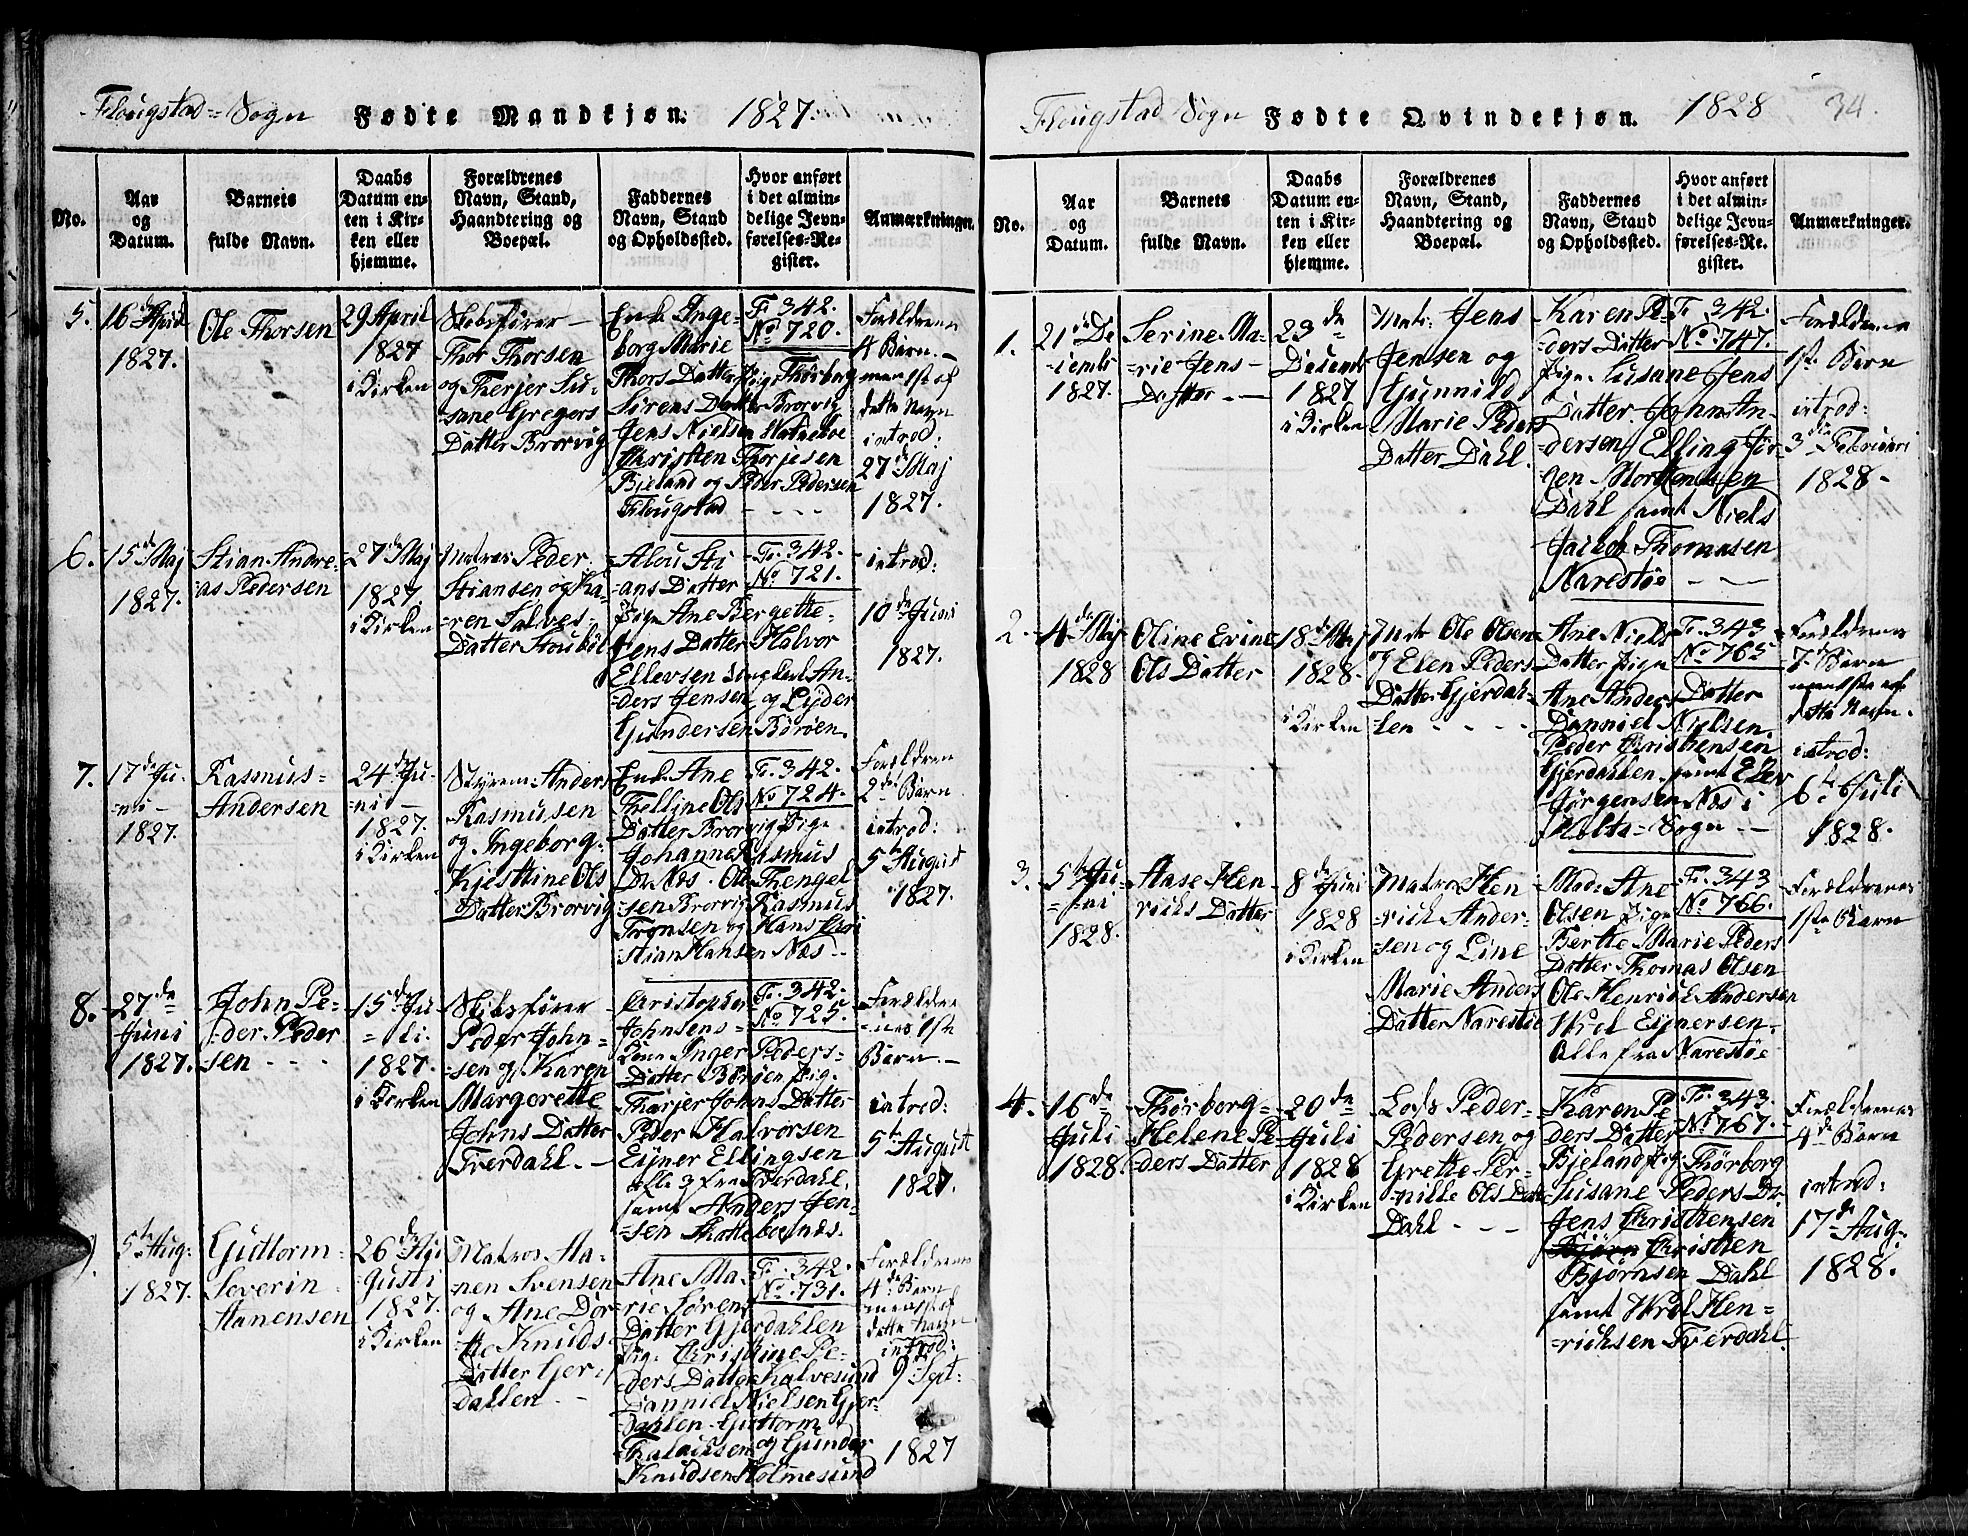 Flougstad = Sogn Fødte Mandkjøn. 1827.
No.
Aar og Datum.
Barnets fulde Navn.
Daabs Datum enten i Kirken eller hjemme.
Forældrenes Navn, Stand, Haandtering og Boepæl.
Faddernes Navn, Stand og Opholdssted.
Hvor anført i det almindelige Jevnførelses-Register.
Anmærkninger.
5.
16 April
1827.
Ole Thorsen
29 April
1827
i Kirken
Thor Thorsen
og Therjer Su-
sane Gregers
Datter Brorvig
Enke Inge-
borg Marie
Thors Datter Pige Thorborg
Sørens Datter Brorvig
Jens Nielsen
Christen Thorjesen
Bjeland og Peder Pedersen
Flougstad
F. 342.
No 720.
Forældrenes
4 Barn.
men 1ste af
dette Navn
introd:
27de Maj
1827.
6.
15de Maj
1827.
Stian Andre-
as Pedersen
27de Maj
1827.
i Kirken
Matros Peder
Stiansen og Ka-
ren Salves-
Datter
Sti
ans Datter
Pige Ane Bergette
Jens Datter Halvor
Ellevsen An-
ders Jensen og
Gundersen Børøen.
F. 342.
No 721.
introd:
10de Juni
1827.
7.
17de Ju-
ni
1827.
Rasmus
Andersen
24de Ju-
ni
1827.
i Kirken
Styrm: Anders
Rasmusen
og Ingeborg
Kjesttine Ols
Datter Brorvig
Enke Ane
Thelline Ols
Datter Brorvig Pige
Johanne Rasmus
Dr Næs. Ole Thengel
sen Brorvig Rasmus
Tronsen og Hans Chri
stian Hansen Næs
F. 342.
No 724.
Forældrenes
2de Barn
introd:
5te August
1827.
8.
27de
Juni
1827.
John Pe-
der Peder
sen
15de Ju-
li.
1827.
i Kirken
Skibsfører
Peder John-
sen og Karen
Margorette
Johns Datter
Tverdahl.
Christopher
Johnsens
Kone Inger Peders-
Datter Børøen Pig.
Tharjer Johns Datter
Peder Halvorsen
Eyner Ellingsen
alle 3 fra Tverdahl.
samt Anders Jen-
sen
F. 342.
No 725.
Forældre-
nes 1ste
Barn
introd:
5te August
1827.
9.
5te Aug:
1827.
Guttorm
Severin
Aanensen
26de Au-
gusti
1827.
i Kirken
Matros Aa-
nen Svensen
og Ane Dor-
the Knuds-
Datter Gjer-
dahlen
Ane Ma-
rie Sørens
Datter Gjerdahlen
Pig: Christine Pe-
ders Datter Kalvesund
Danniel Nielsen Gjer-
dahlen Guttorm
og Gunder
Knudsen Holmesund
F. 342.
No 731.
Forældrenes
4de Barn
men 1ste af
dette Navn
introd:
9de Sept:
1827
Flougstad Sogn Fødte Qvindekjøn. 1828 34.
No.
Aar og Datum.
Barnets fulde Navn.
Daabs Datum enten i Kirken eller hjemme.
Forældrenes Navn, Stand, Haandtering og Boepæl.
Faddernes Navn, Stand og Opholdssted.
Hvor anført i det almindelige Jevnførelses-Re. gister.
Anmærkninger.
1.
21de De
cembr
1827.
Serine Ma-
rie Jens
Datter
23de
Decemb
1827
i Kirken
Matr: Jens
Jensen og
Gunnild
Marie Peders
Datter Dahl.
Karen Pe-
ders Datter
Pige Susane Jens
Datter John An-
dersen Elling Jør-
gen Mortensen
Dahl samt Niels
Jacob Thomasen
Narestøe
F. 342.
No. 747.
Forældrenes
1ste Barn
introd:
3die Februari
1828.
2.
4de Maj
1828
Oline Evine
Ols Datter
18de Maj
1828.
i Kirken
Matr Ole Olsen
Elen Peders
Datter Gjerdah-
len
Ane Niels
Datter Pige
Ane Anders Datter
Danniel Nielsen.
Peder Christensen
Gjerdahlen samt
Jørgensen Næs i
Holts = Sogn
F. 343
No 765
Forældrenes
7de Barn
men 1ste af
dette Navn.
introd:
6te Juli
1828.
3.
5te Ju-
ni
1828.
Aase Hen
richs Datter
8de Juni
1828
i Kirken
Matros Hen
rich Ander-
sen og Line
Marie Anders
Datter Narestøe
Mad: Ane
Olsen Pige
Berthe Marie Peders
Datter Thomas Olsen
Ole Henrich Andersen
Wrel Eynersen.
Alle fra Narestøe
F. 343
No 766.
Forældrenes
1ste Barn
4.
16de
Juli
1828.
Thorborg
Helene Pe-
ders Datter
20de
Juli
1828
i Kirken
Lods Peder
Pedersen og
Grethe Per-
nille Ols Datt
Dahl
Karen Pe
ders Datter
Bjeland Pig: Thørborg
Susane Peders Dr
Jens Christensen
Bjørn Christen
Bjørnsen Dahl
samt Wrel Hen-
richsen Tverdahl.
F. 343.
No 767.
Forældrenes
4de Barn
introd:
17de Aug:
1828.